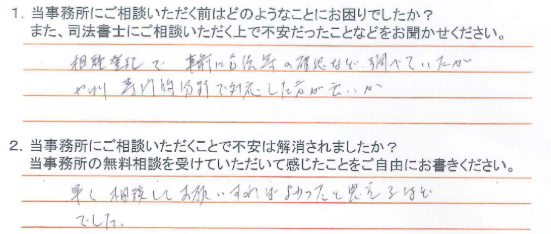 1. 当事務所にご相談いただく前はどのようなことにお困りでしたか？
また、司法書士にご相談いただく上で不安だったことなどをお聞かせください。
相続登記で 事前に方法等の確認など調べていたが
やはり専門的分野で対応した方が良いか
2. 当事務所にご相談いただくことで不安は解消されましたか？
当事務所の無料相談を受けていただいて感じたことをご自由にお書きください。
早く相談してお願いすればよかったと思えるほど
でした。